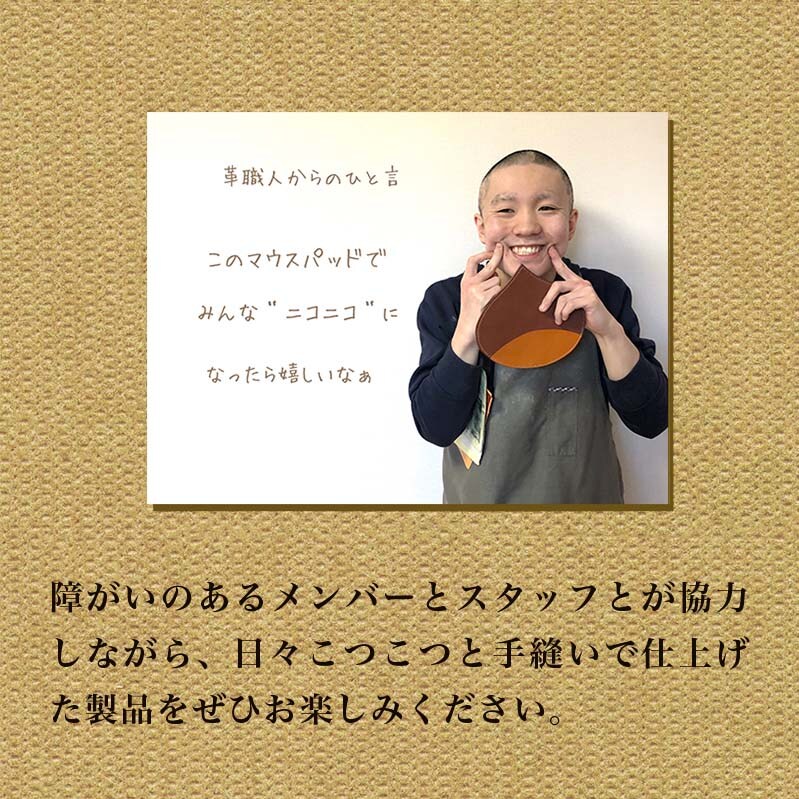 革職人からのひと言
このマウスパッドで
みんな"ニコニコ"に
なったら嬉しいなぁ
障がいのあるメンバーとスタッフとが協力
しながら、日々こつこつと手縫いで仕上げ
た製品をぜひお楽しみください。